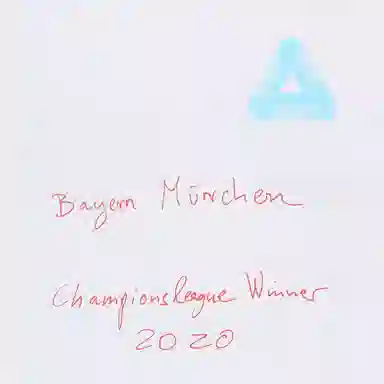 Bayern München
Championsleague Winner
2020